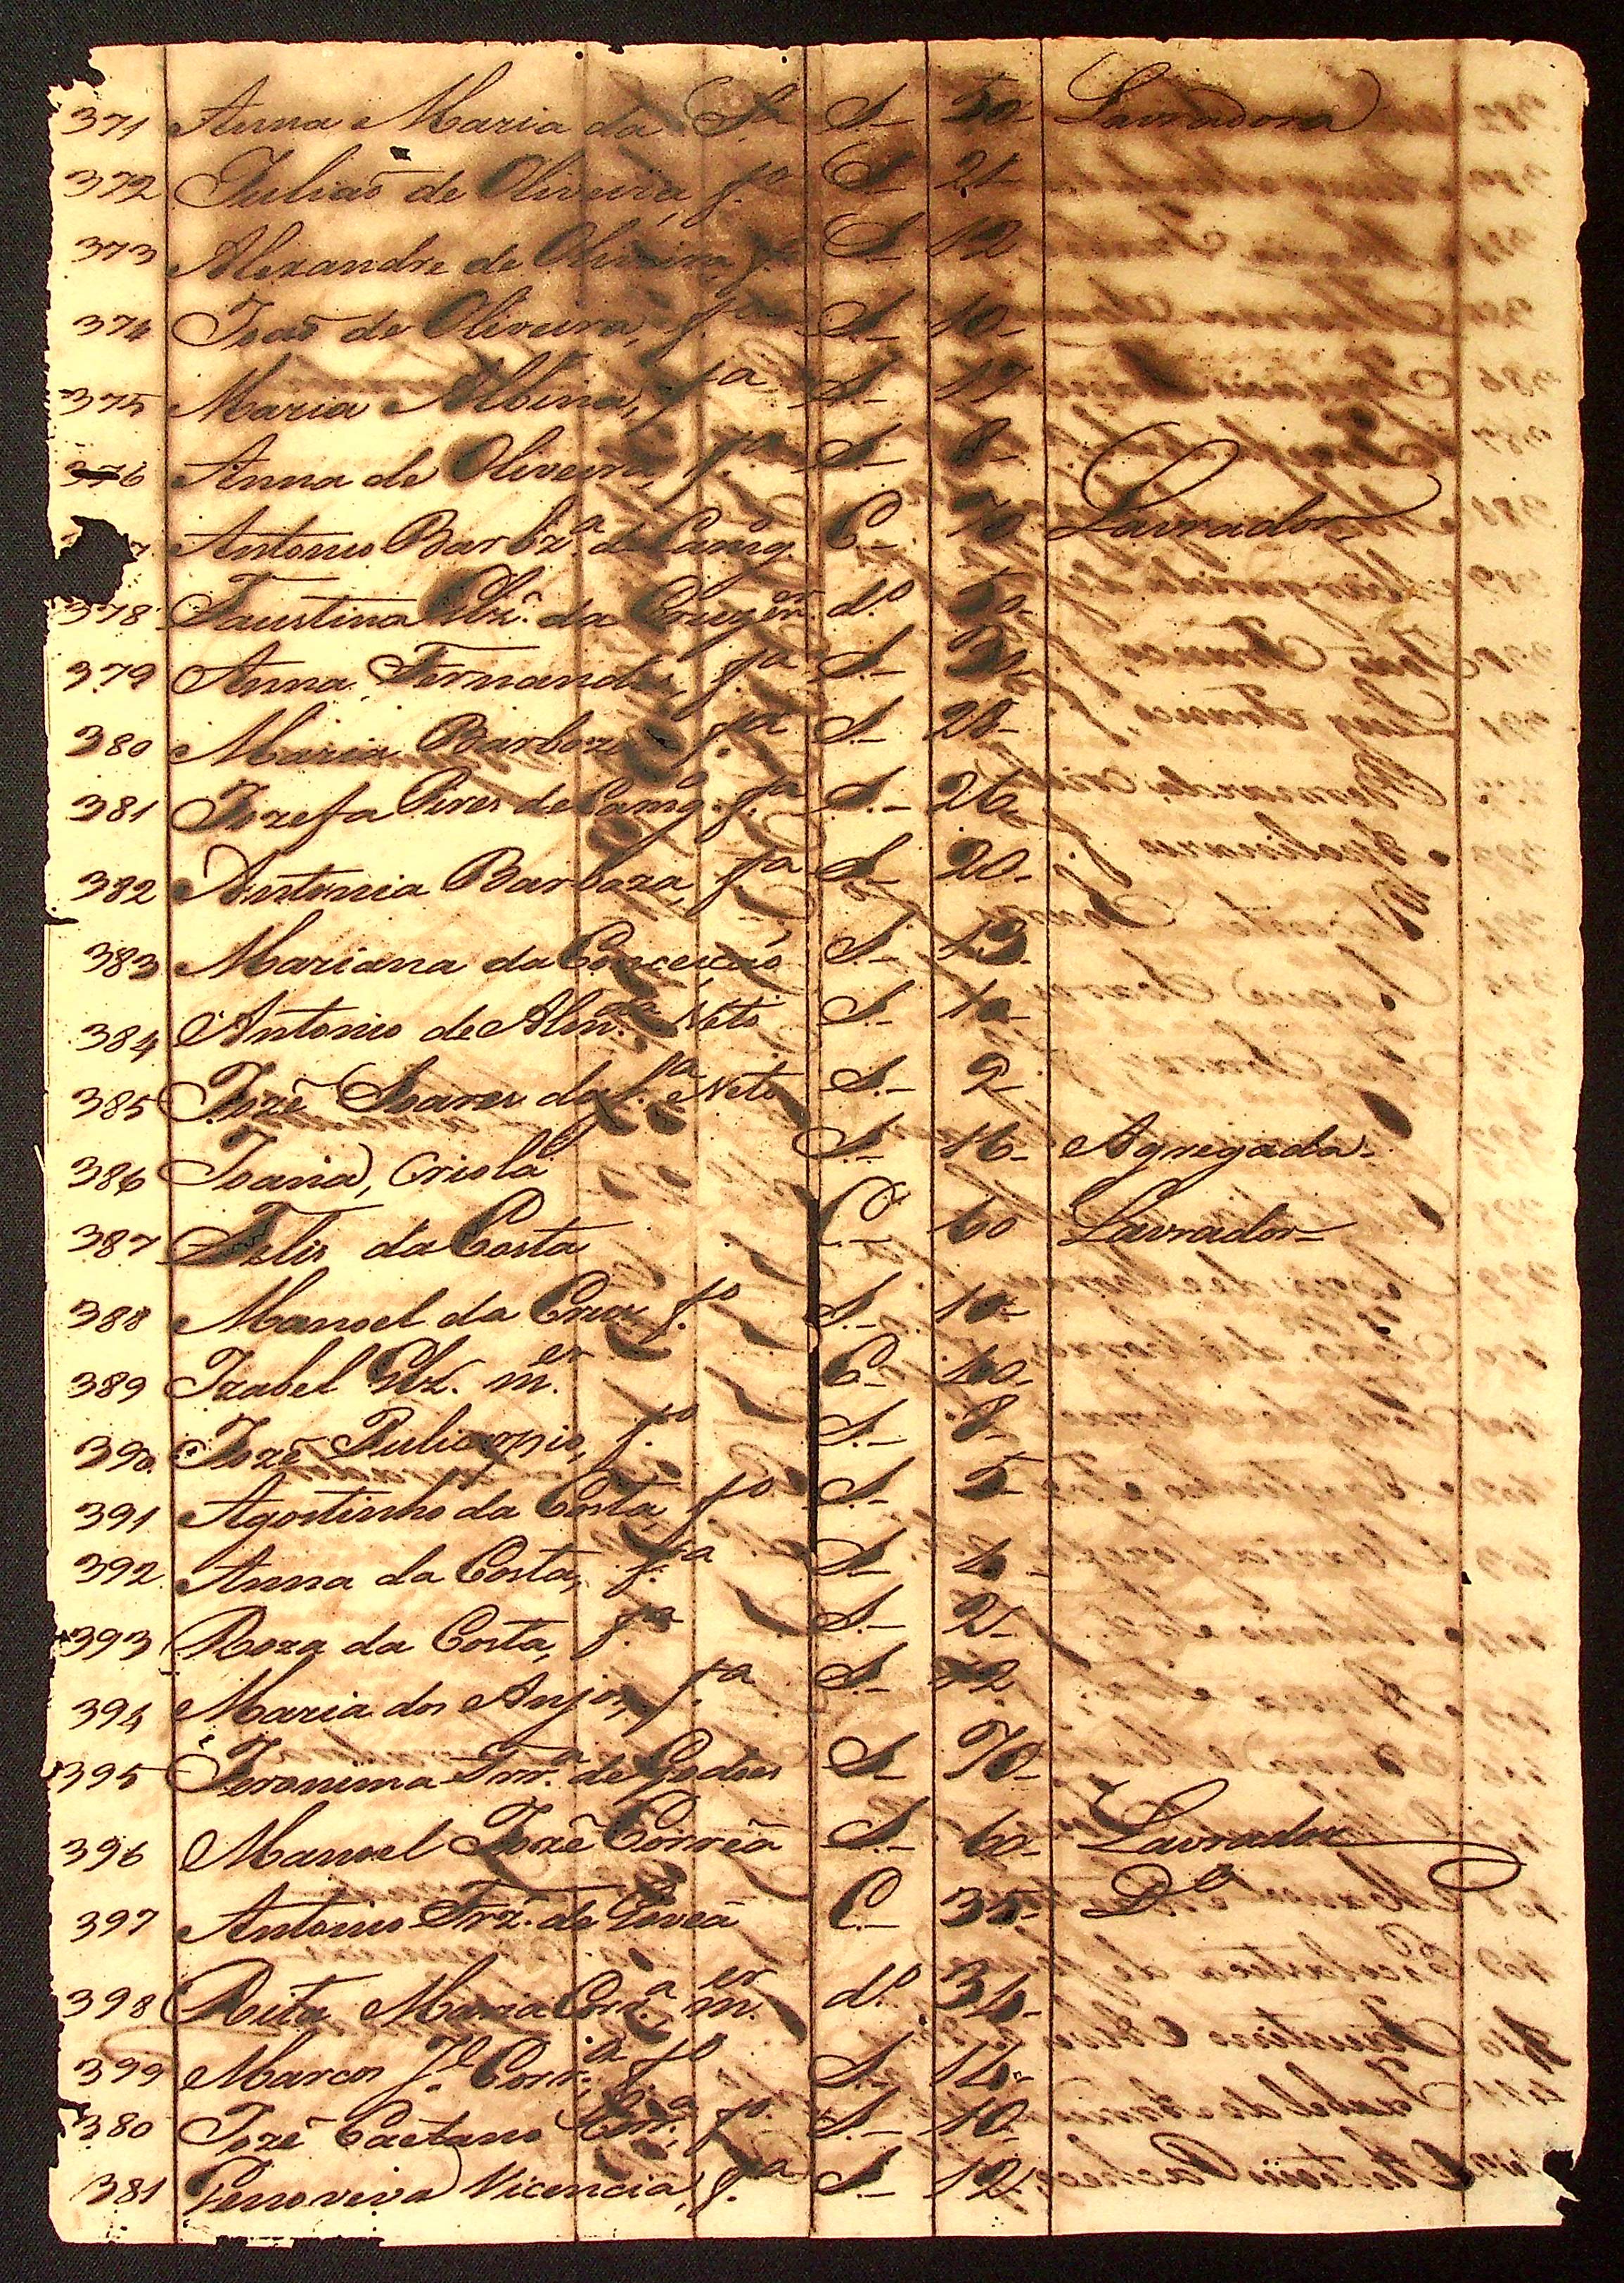 371 Anna Maria da S.ª S.- 50 Lavradora
372 Julião de Oliveira, f.º S.- 21
373 Alexandre de Oliveira, f.º S.- 12
374 João de Oliveira, f.º S.- 10-
375 Maria Albina, f.ª S.- 17
376 Anna de Oliveira, f.ª S.- 8-
Antonio Barbz.ª de Camg.º C.- 70 Lavrador
378 Faustina Glz. da Cruz m.er d.º 60-
379 Anna Fernandes, f.ª S.-
380 Maria Barboza f.ª S.- 28-
381 Jozefa Pires de Camg.º f.ª S.- 26-
382 Antonia Barboza, f.ª S.- 20-
383 Mariana da Conceição S.- 13-
384 Antonio de Alm.da Neto S.- 10-
385 Jozê Soares da S.ª Neto S.- 2-
386 Joana, Criola S.- 16- Agregada-
387 Felis da Costa C.- 60 Lavrador-
388 Manoel da Cruz f.º S.- 10-
389 Izabel Glz. m.er C.- 40-
390. Jozê Pulicarpio, f.º S.- 8-
391 Agostinho da Costa, f.º S.- 5-
392 Anna da Costa, f.ª S.-
393 Roza da Costa, f.ª S.- 2-
394 Maria dos Anjos, f.ª S.- 12
395 Jeronima Frr.ª de Godoes S.- 70-
396 Manoel Jozê Corrêa S.- 60- Lavrador
397 Antonio Frz. de Govêa C.- 35- D.º
398 Rita Maria Corr.ª m.er d.º 34-
399 Marcos J.e Corr.ª f.º S.- 14-
380 Jozê Caetano Corr.ª, f.º S.- 10-
381 Genoveva Vicencia, f.ª S.- 12-